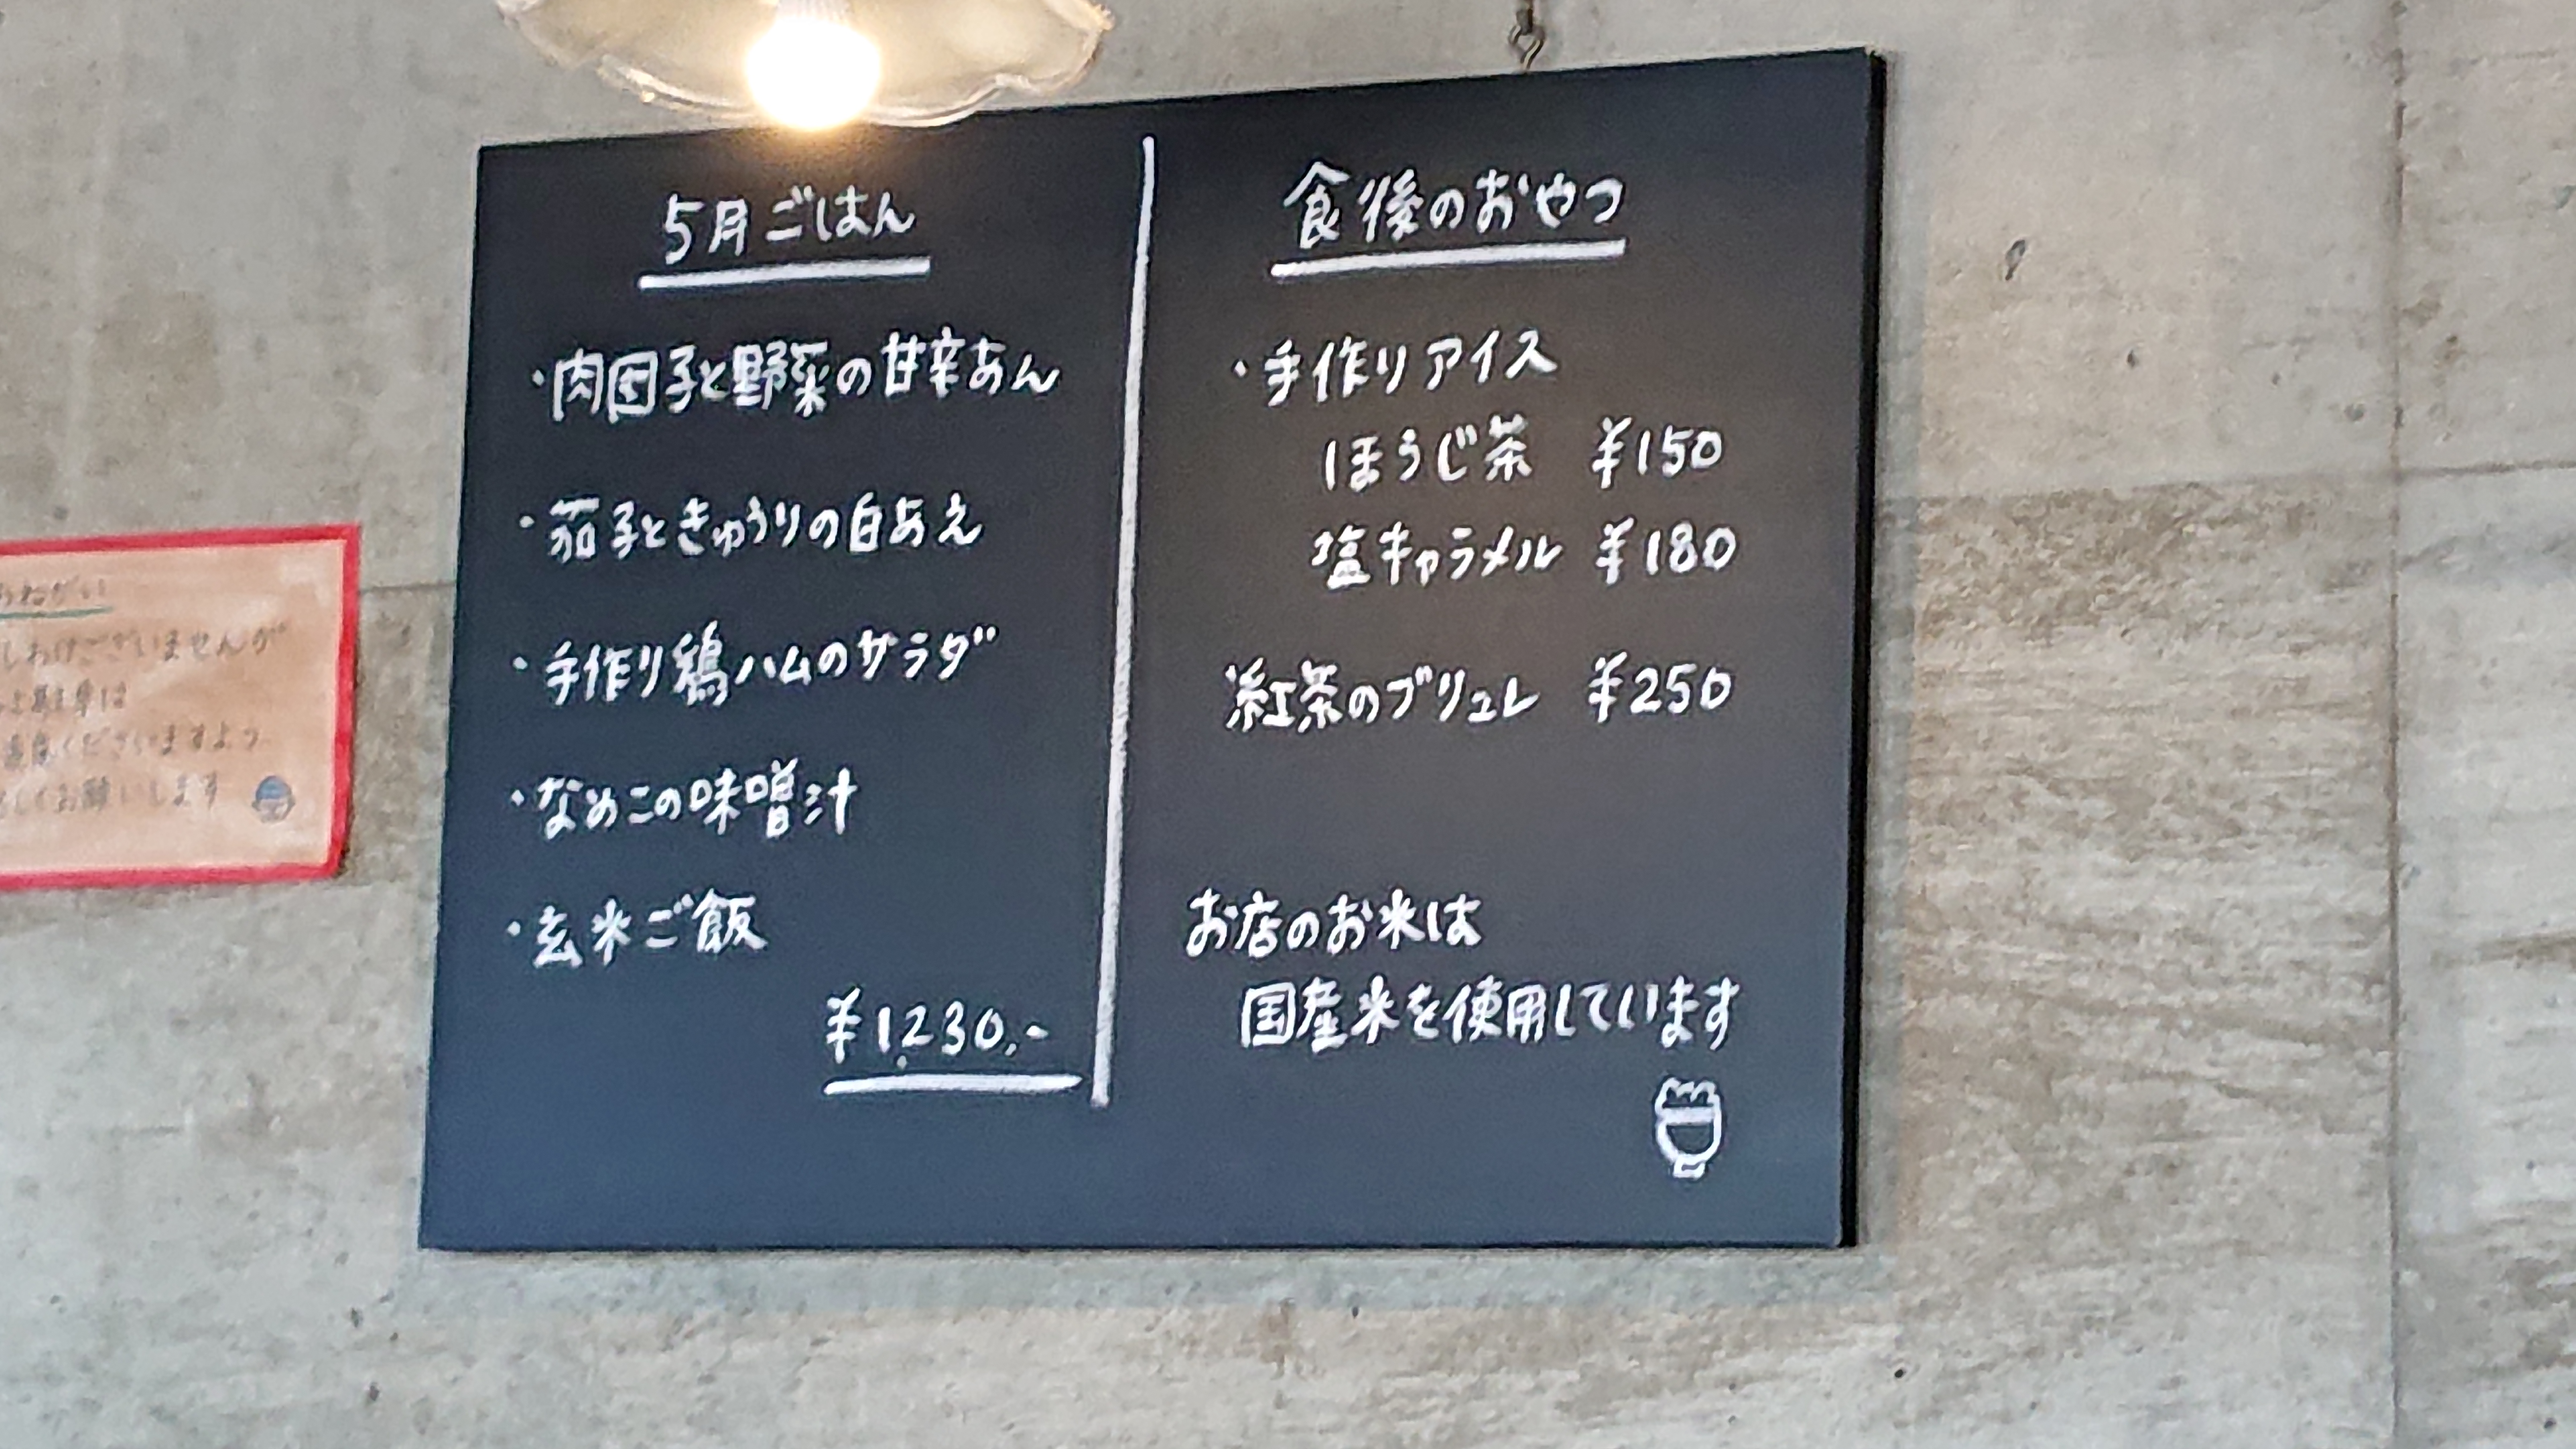 5月ごはん
・肉団子と野菜の甘辛あん
・茄子ときゅうりの白あえ
・手作り鶏ハムのサラダ
・なめこの味噌汁
・玄米ご飯
¥1,230.-
食後のおやつ
・手作りアイス
ほうじ茶 ¥150
塩キャラメル ¥180
紅茶のブリュレ ¥250
お店のお米は
国産米を使用しています
おねがい
しわけございませんが
くださいますよう
しくお願いします